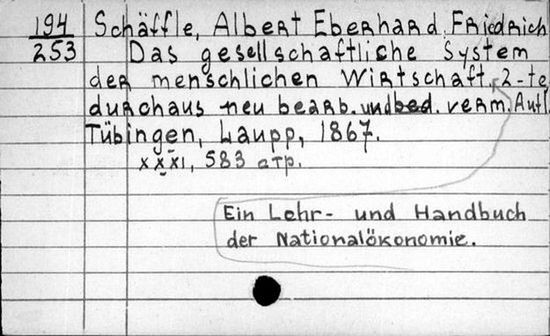 194 Schäffle, Albert Eberhard Friedrich
253 Das gesellschaftliche System
der menschlichen Wirtschaft, 2-te
durchaus neu bearb. und bed. verm. Aufl.
Tübingen, Laupp, 1867.
XXXI, 583 стр.
Ein Lehr- und Handbuch
der Nationalökonomie.